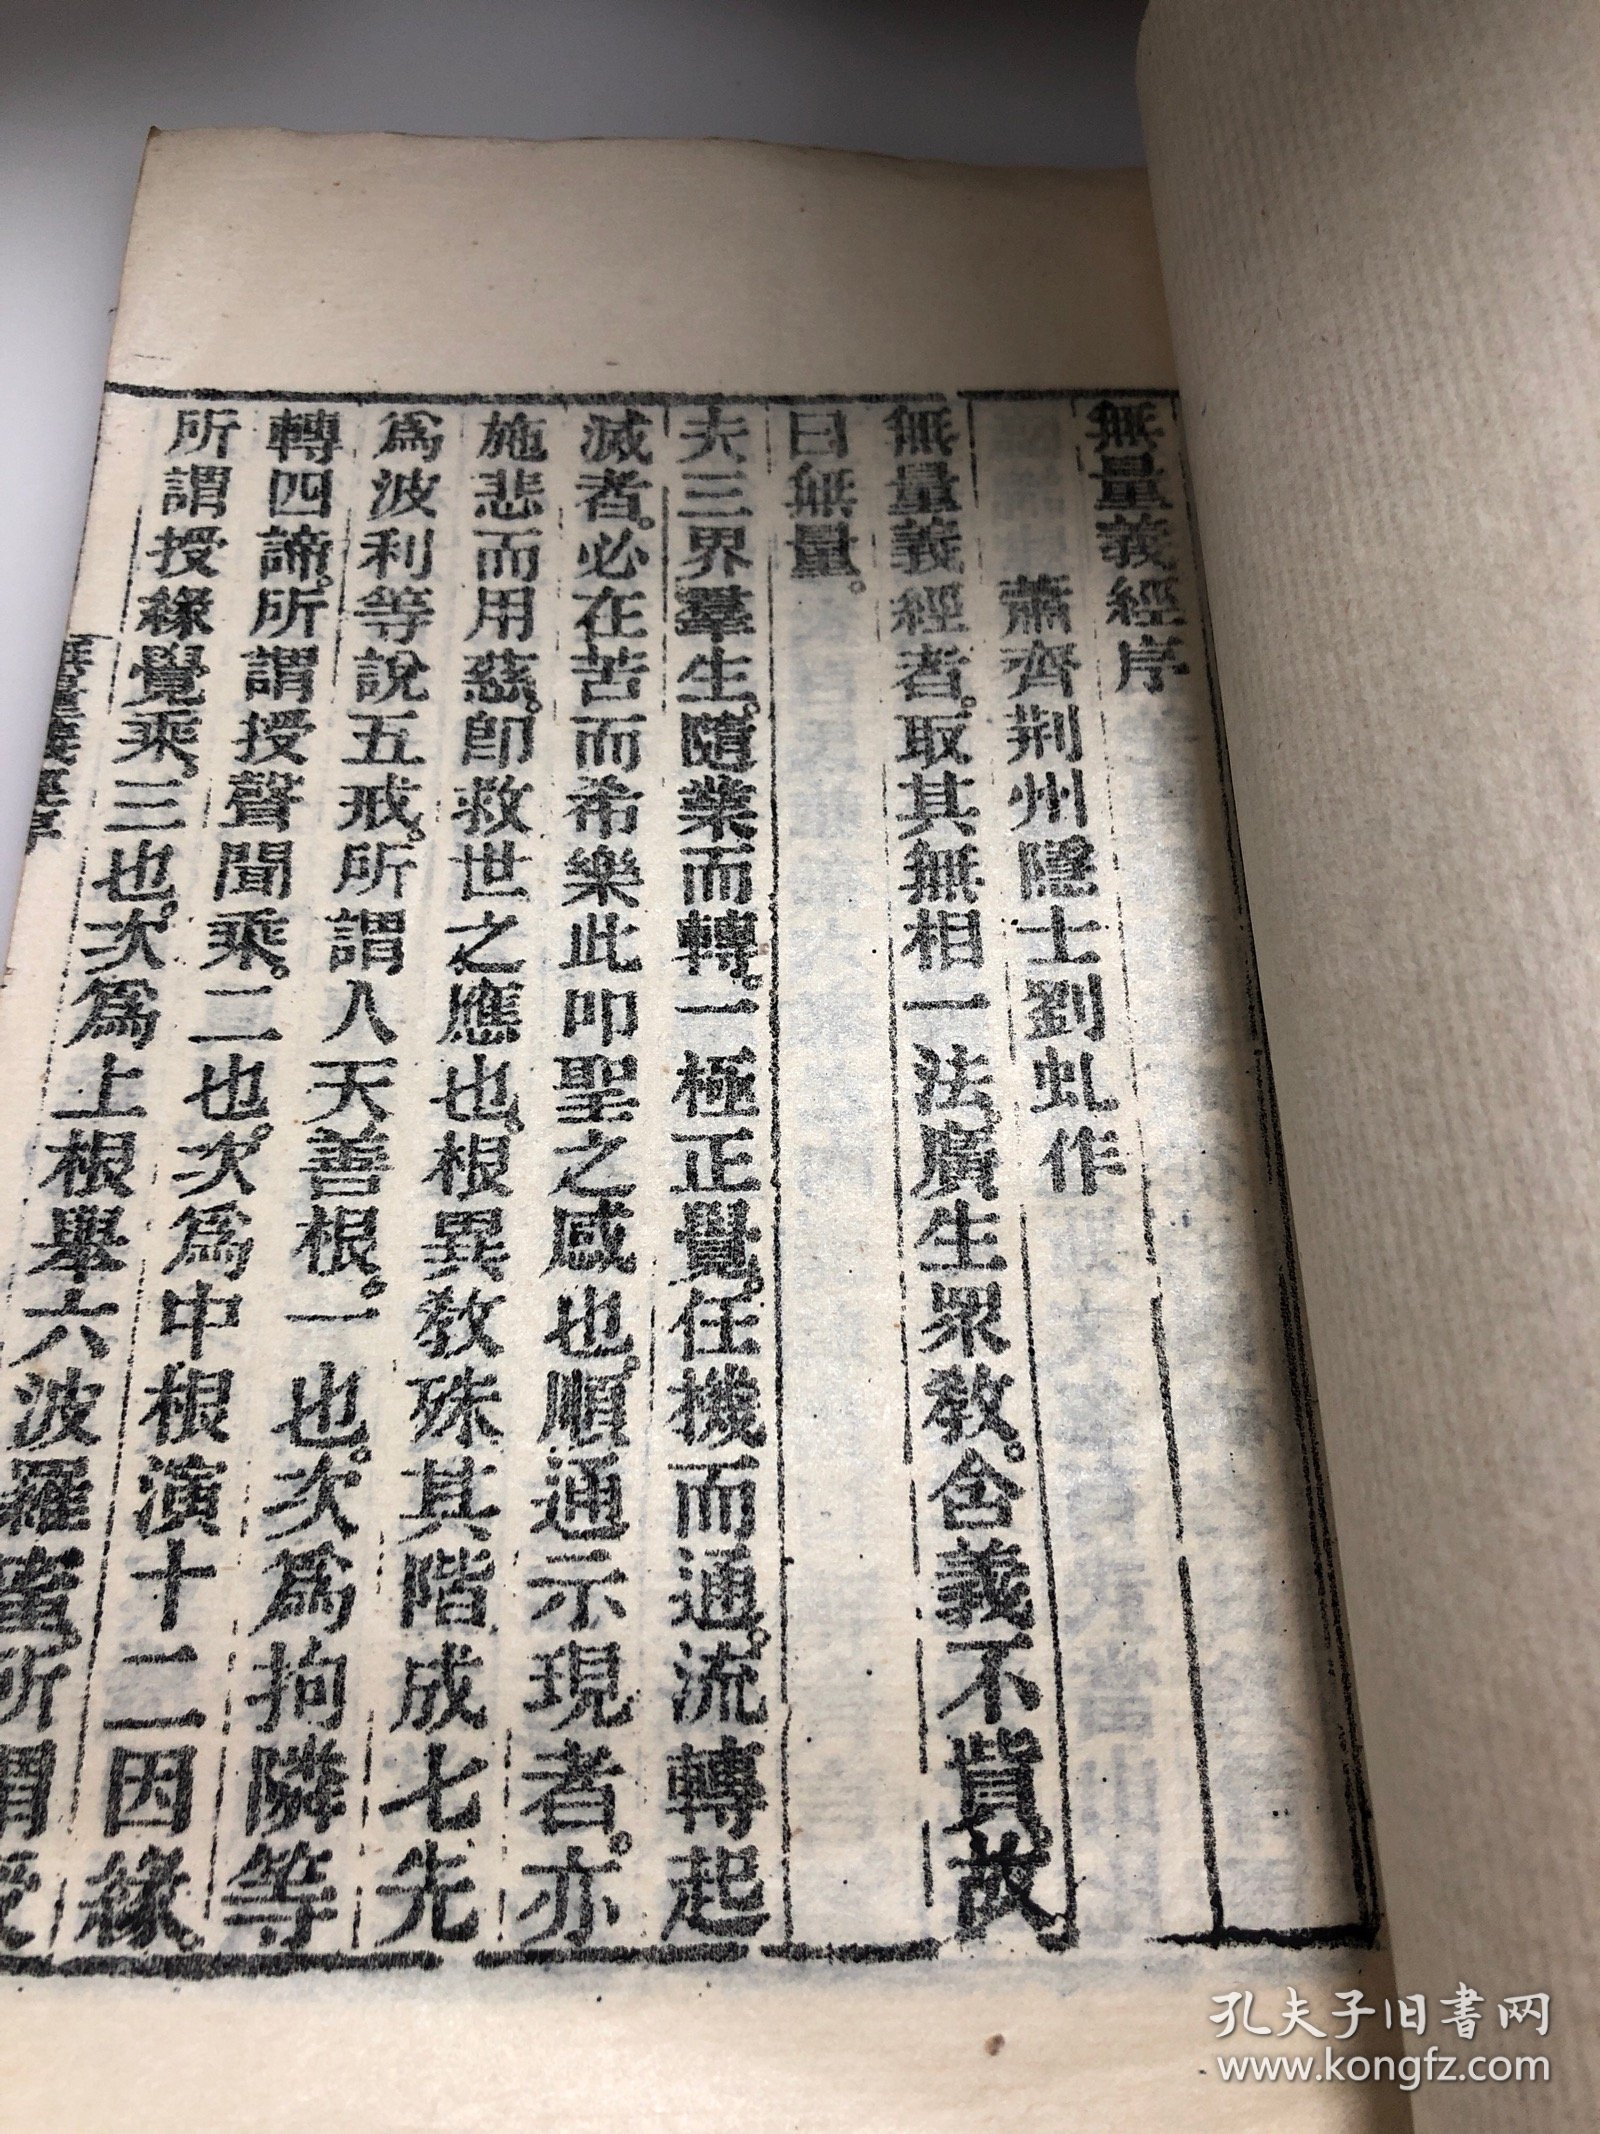 無量義經序
蕭齊荆州隱士劉虬作
無量義經者。取其無相一法。廣生眾教。含義不貲。故
曰無量。
夫三界羣生。隨業而轉。一極正覺。任機而通。流轉起
滅者。必在苦而希樂此叩聖之感也。順通示現者。亦
施悲而用慈。卽救世之應也。根異教殊其階成七先
爲波利等說五戒。所謂人天善根。一也。次爲拘隣等
轉四諦。所謂授聲聞乘。二也。次爲中根演十二因緣。
所謂授緣覺乘。三也。次爲上根舉六波羅蜜。所謂授
無量義經序
孔夫子旧書网
www.kongfz.com